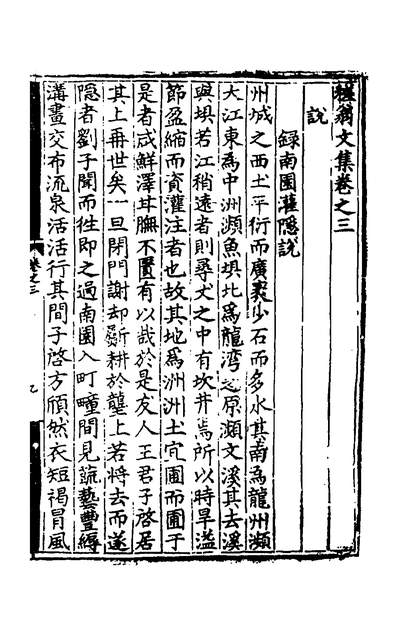 樵翁文集卷之三
說
錄南園灌隱說
州城之西土平衍而廣袤少石而多水其南為龍州瀕
大江東為中洲瀕魚埧北為龍湾之原瀕文溪其去溪
與埧若江稍遠者則尋丈之中有坎井焉所以時旱溢
節盈縮而資灌注者也故其地為洲洲土宜圃而圃于
是者咸鮮澤其膴不匱有以哉於是友人王君子啓居
其上再世矣一旦閉門謝却斸耕於壟上若將去而遂
隱者劉子聞而徃即之過南園入町疃間見蔬藝豐縟
溝畫交布流泉活活行其間子啓方頎然衣短褐冒風
卷之三